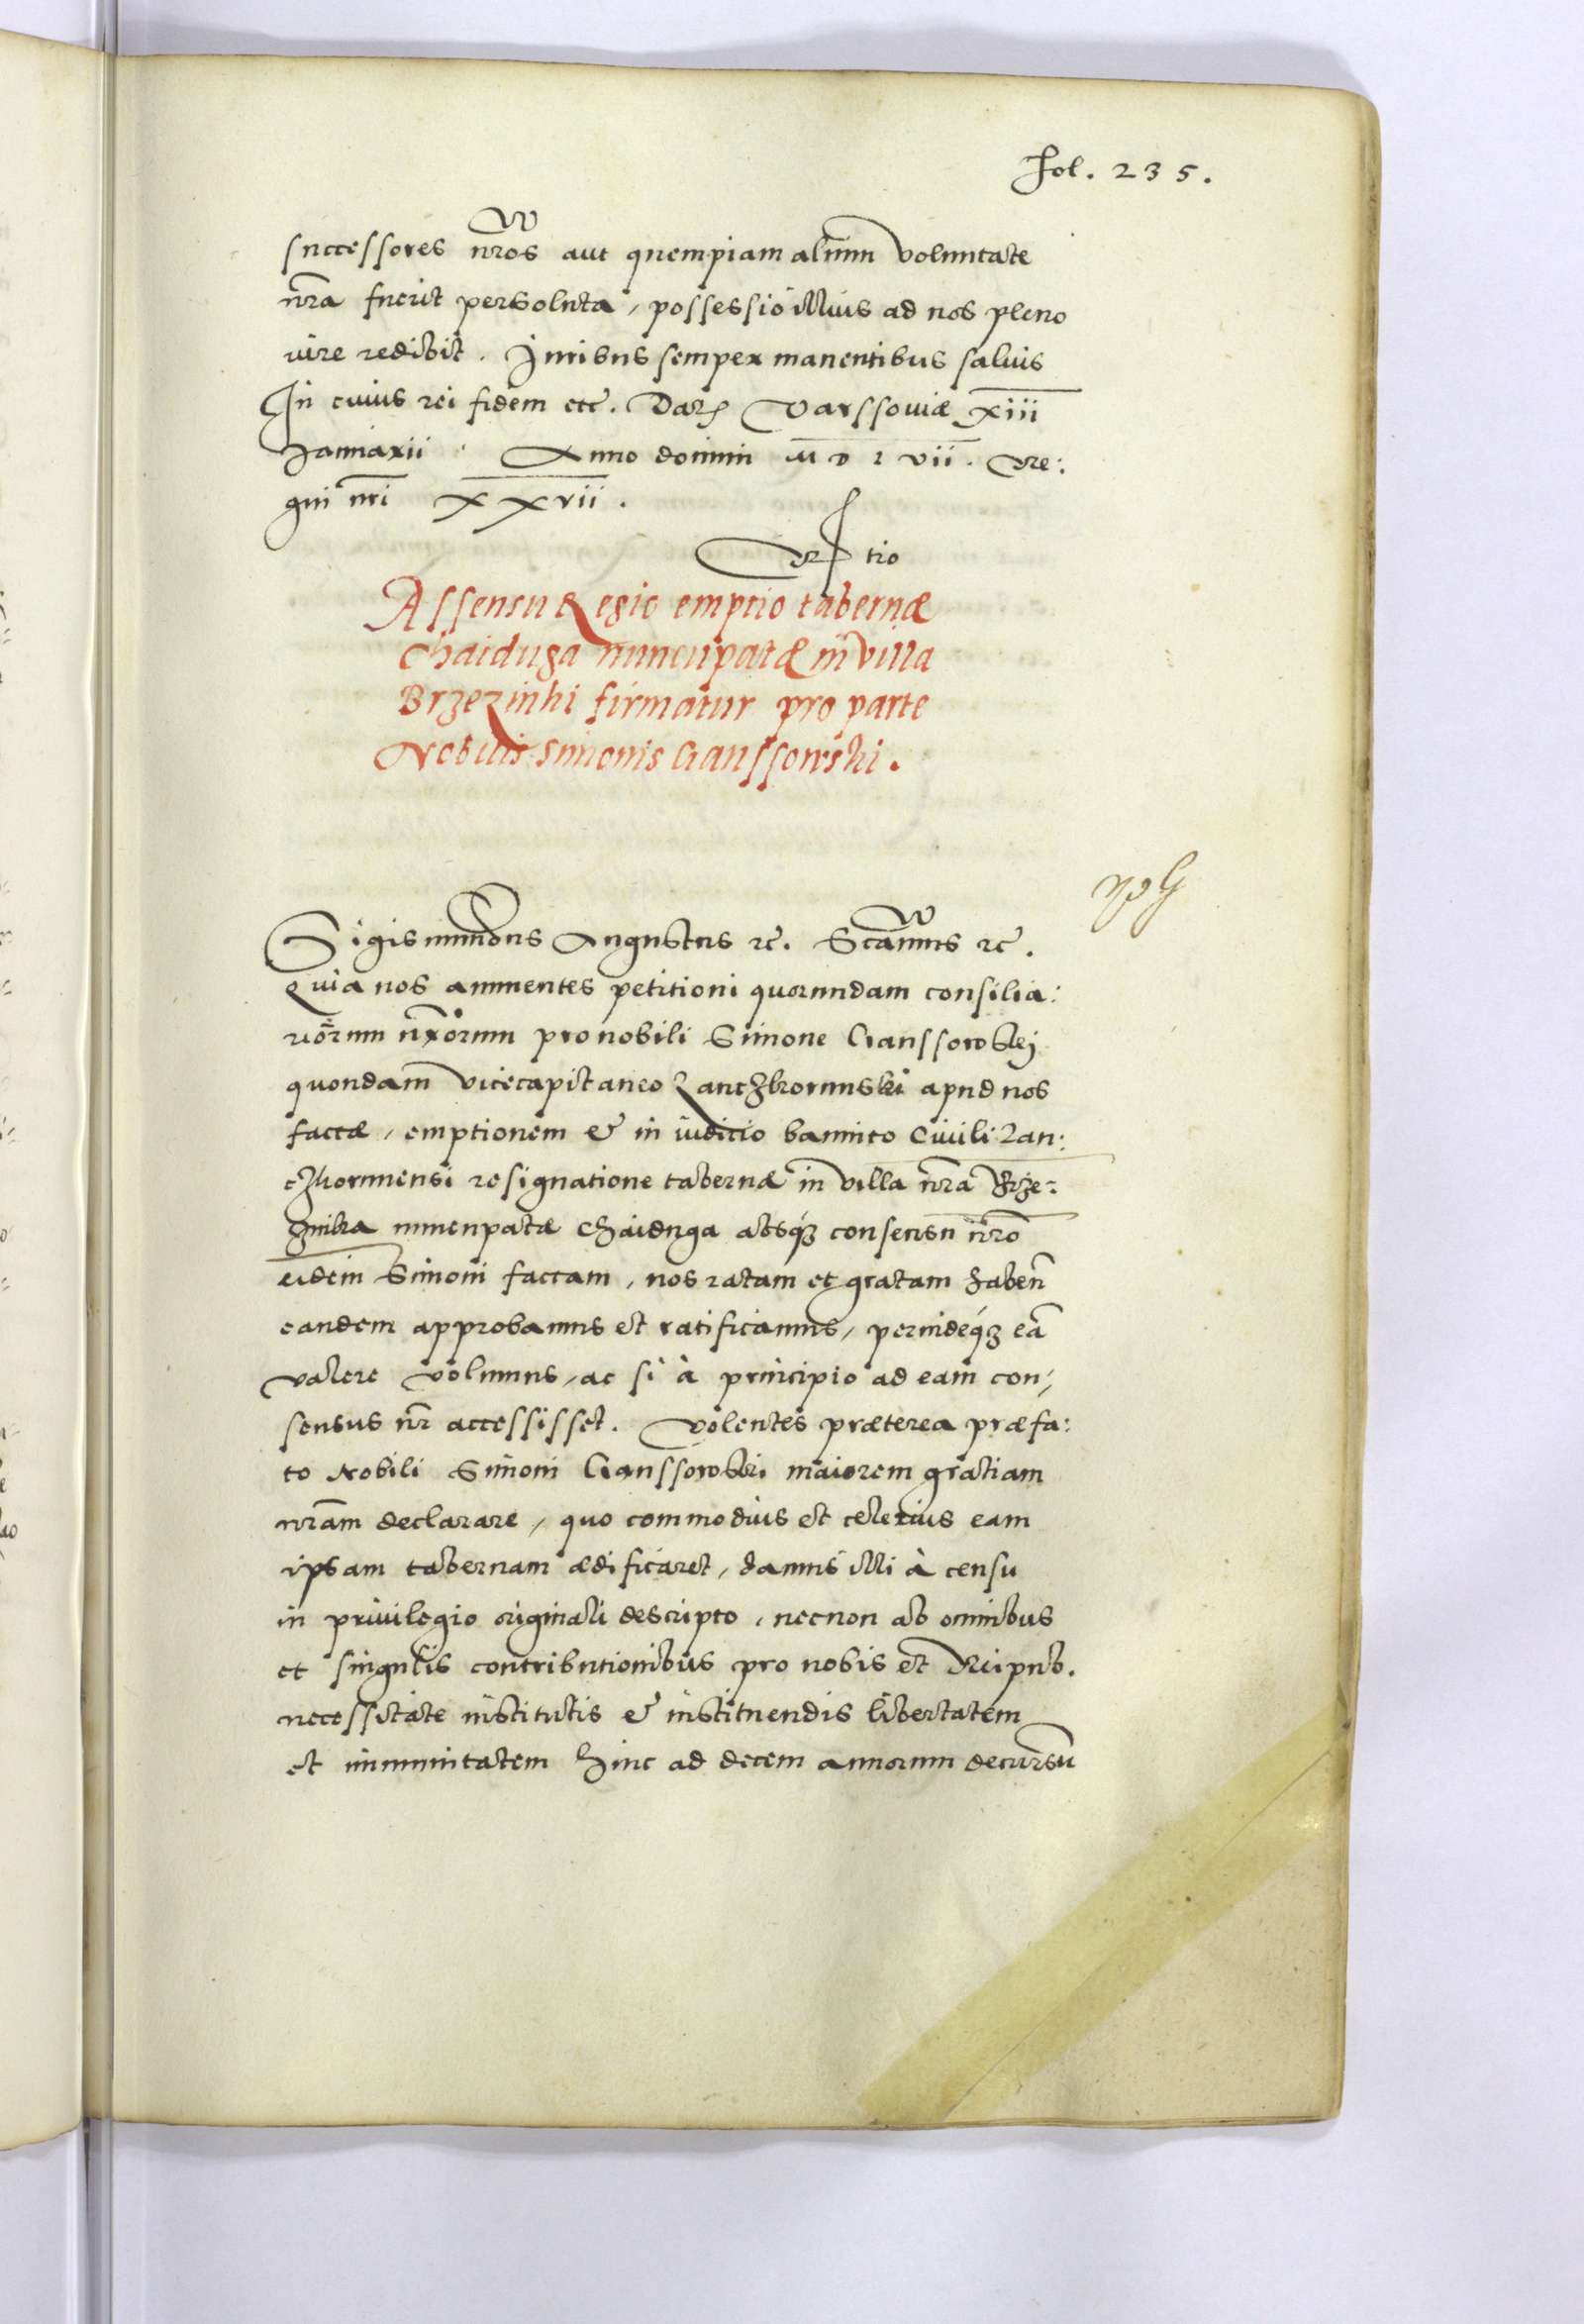 Fol. 235.
successores nr̄os aut quempiam alium voluntate
nr̄a fuerit persoluta, possessio illius ad nos pleno
iure redibit. Iuribus semper manentibus saluis
In cuius rei fidem etc. Dat Varssouiæ XIII
Januarii Anno domini M D L VII. Re:
gni nr̄i XXVII.
Rtio
Assensu Regio emptio tabernæ
Chaiduga nuncupatæ in villa
Brzezinki firmatur pro parte
Nobilis Simonis Ganssowski.
Sigismundus Augustus etc. Sc̄amus etc.
Quia nos annuentes petitioni quorundam consilia:
riorum nr̄orum pro nobili Simone Ganssowskj
quondam vicecapitaneo Zanczkorunski apud nos
factæ, emptionem & in iudicio bannito Ciuili Zan:
czkorunensi resignatione tabernæ in villa nr̄a Brze:
zinka nuncupatæ Chaiduga absq; consensu nr̄o
eidem Simoni factam, nos ratam et gratam haben̄
eandem approbamus et ratificamus, perindeq; eā
valere volumus, ac si à principio ad eam con,
sensus nr̄ accessisset. Volentes præterea præfa:
to Nobili Simoni Ganssowski maiorem gratiam
nr̄am declarare, quo commodius et celerius eam
ipsam tabernam ædificaret, damus illi à censu
in priuilegio originali descripto, necnon ab omnibus
et singulis contributionibus pro nobis et Reipub.
necessitate institutis & instituendis libertatem
et immunitatem hinc ad decem annorum decursū